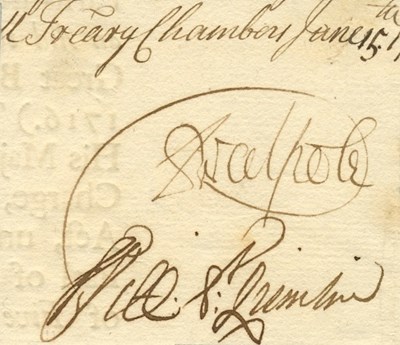 Treary Chambers June 15th
RWalpole
Will: St Quintin
Great B
1716.)
His Maj
Charge,
Act, un
of
of